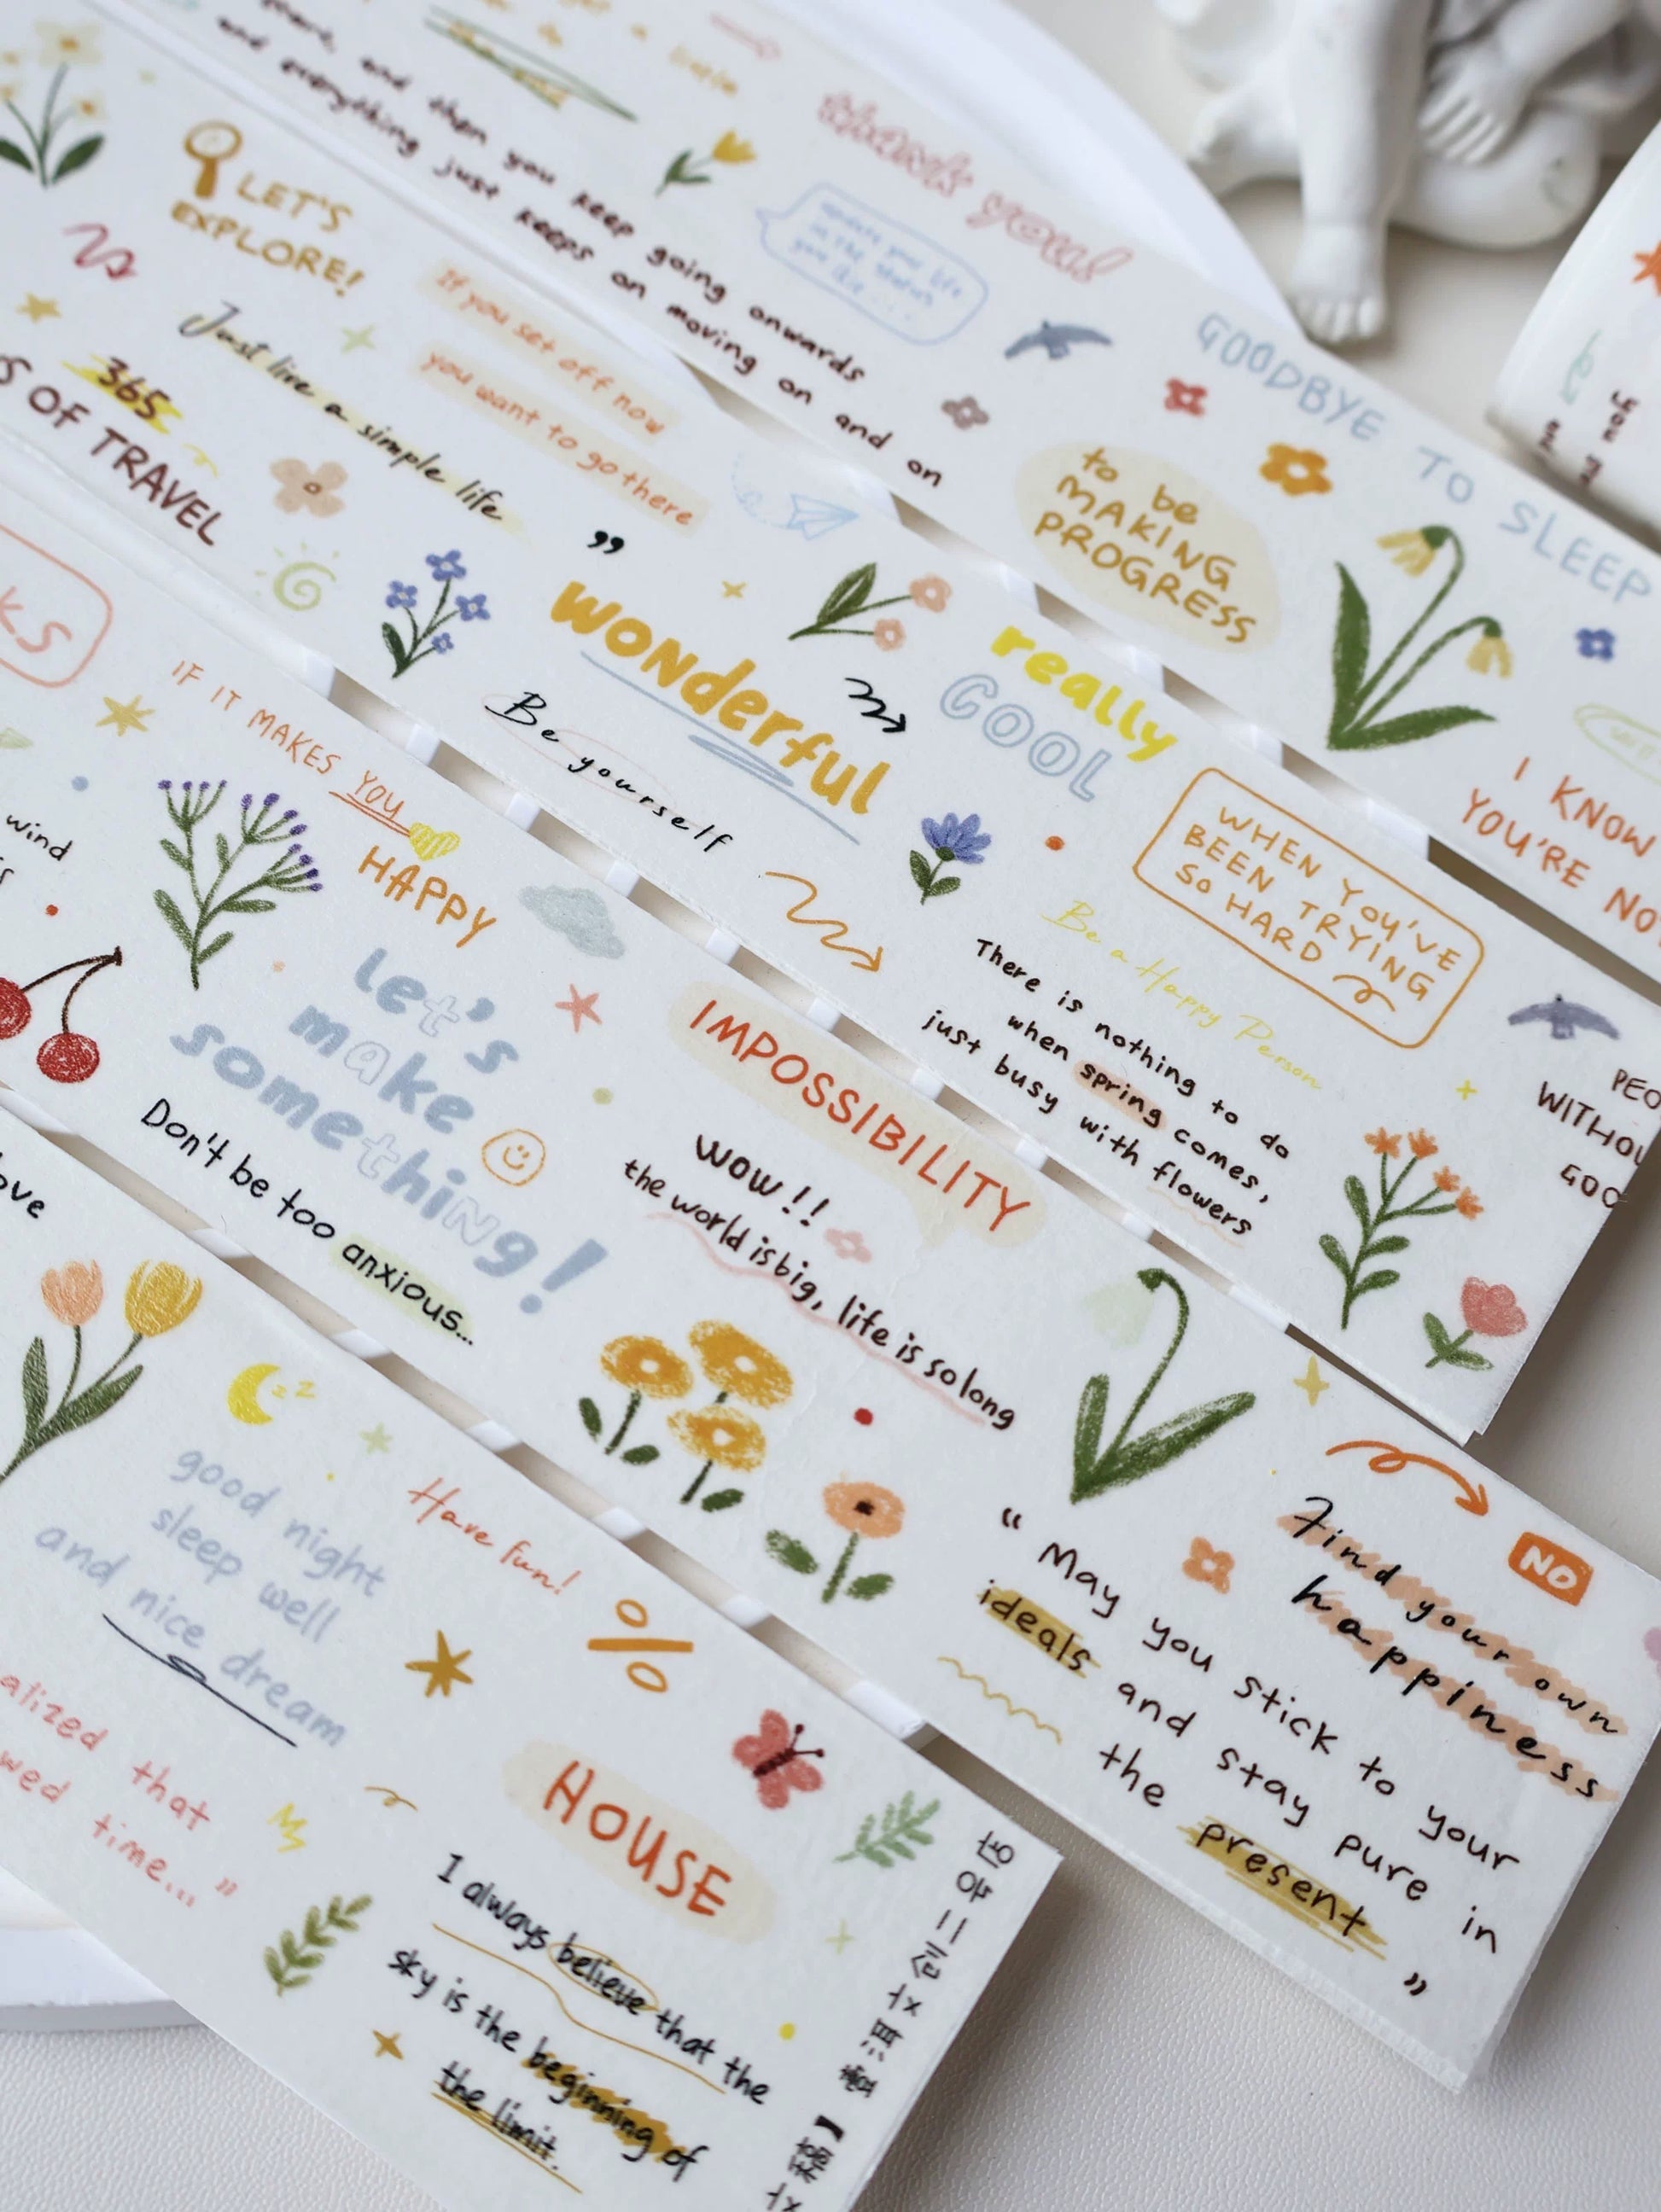 and then you keep going onwards
and everything just keeps on moving on and on
little
thank you!
GOODBYE TO SLEEP
to be
MAKING
PROGRESS
I KNOW
YOU'RE
LET'S
EXPLORE!
Just live a simple life
If you set off now
you want to go there
365
OF TRAVEL
”
wonderful
Be yourself
really
COOL
WHEN YOU'VE
BEEN TRYING
SO HARD
Be a Happy Person
There is nothing to do
when spring comes,
just busy with flowers
IF IT MAKES YOU
HAPPY
wind
let's
make
something!
Don't be too anxious...
IMPOSSIBILITY
WOW!!
the world is big, life is so long
“ May you stick to your
ideals and stay pure in
the present ”
Find your own
happiness
NO
good night
sleep well
and nice dream
Have fun!
%
that
time... ”
HOUSE
I always believe that the
sky is the beginning of
the limit.